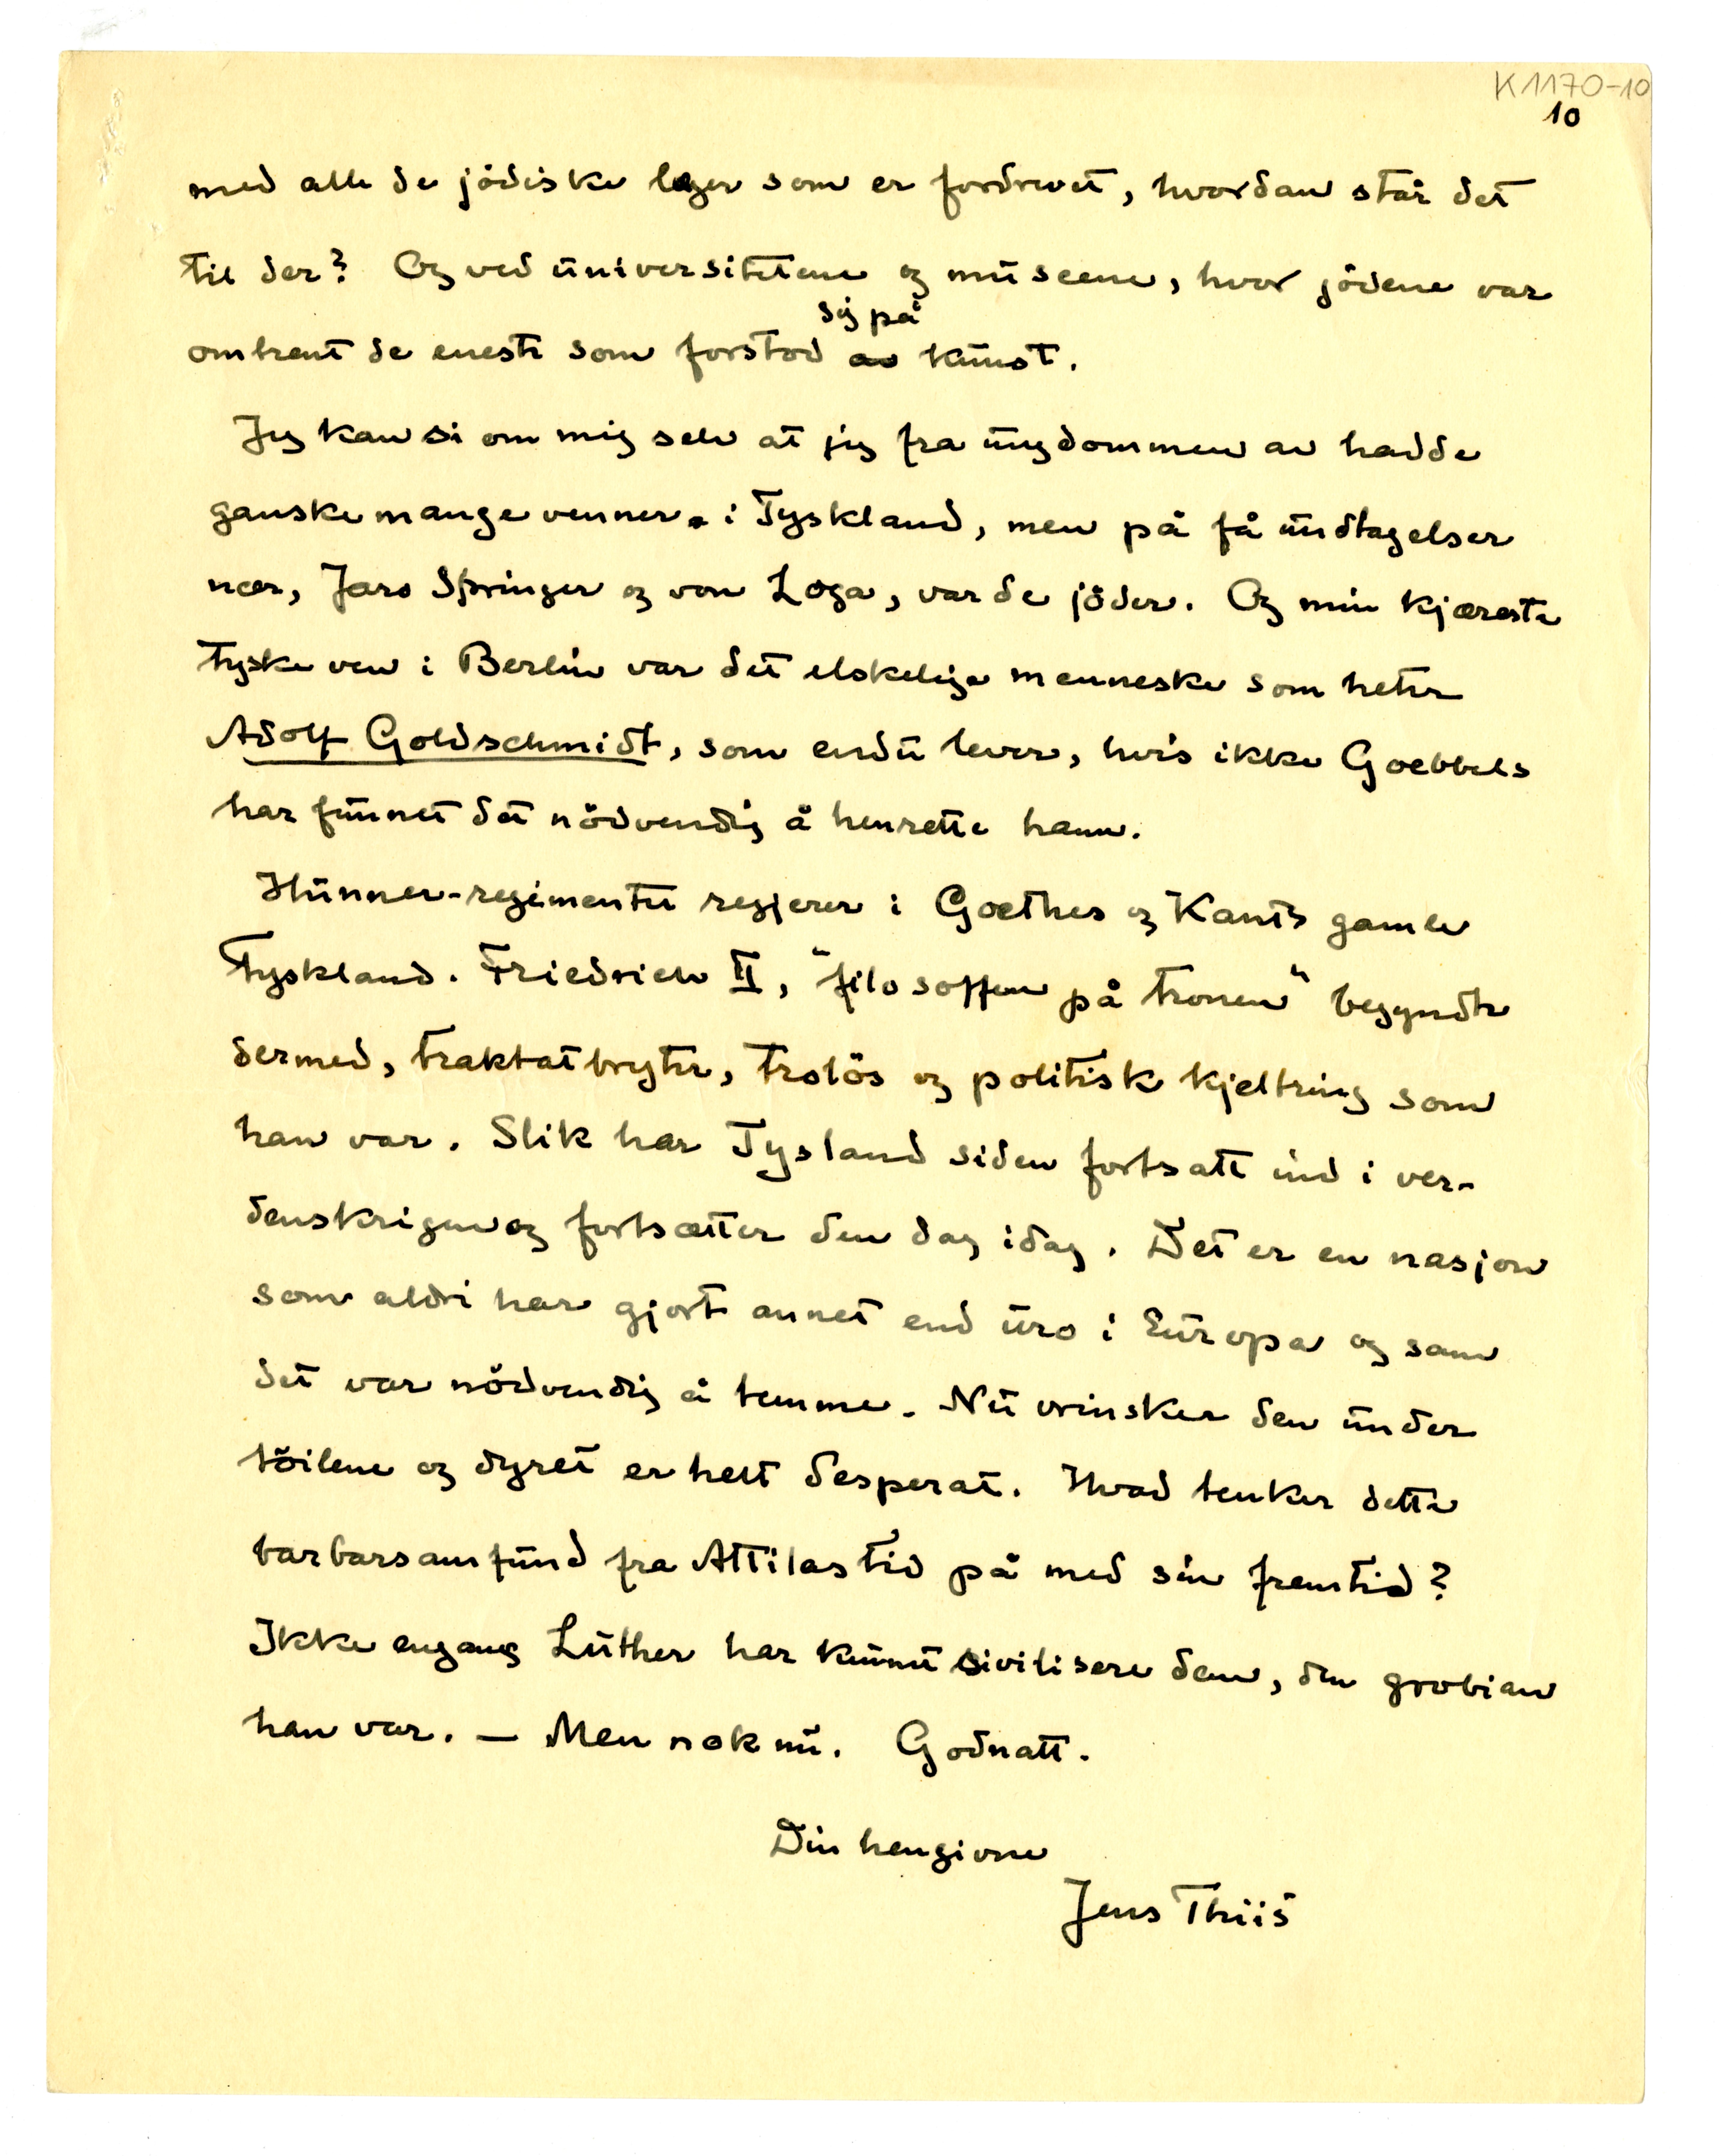 K1170-10
10
med alle de jödiske leger som er fordrevet, hvordan står det
til der? Og ved universitetene og museene, hvor jödene var
sig på
omtrent de eneste som forstod av kunst.
Jeg kan si om mig selv at jeg fra ungdommen av hadde
ganske mange venner i Tyskland, men på få undtagelser
nær, Jaro Springer og von Loga, var de jöder. Og min kjæreste
tyske ven i Berlin var det elskelige menneske som heter
Adolf Goldschmidt, som endu lever, hvis ikke Goebbels
har funnet det nödvendig å henrette ham.
Hunner-regimentet regjerer i Goethes og Kants gamle
Tyskland. Friedrich II, "filosoffen på tronen" begyndte
dermed, traktatbryter, trolös og politisk kjeltring som
han var. Slik har Tysland siden fortsatt ind i ver-
denskrigen og fortsætter den dag idag. Det er en nasjon
som aldri har gjort annet end uro i Europa og som
det var nödvendig å temme. Nu vrinsker den under
töilene og dyret er helt desperat. Hvad tenker dette
barbarsamfund fra Attilas tid på med sin fremtid?
Ikke engang Luther har kunnet sivilisere dem, den grobian
han var. — Men nok nu. Godnatt.
Din hengivne
Jens Thiis